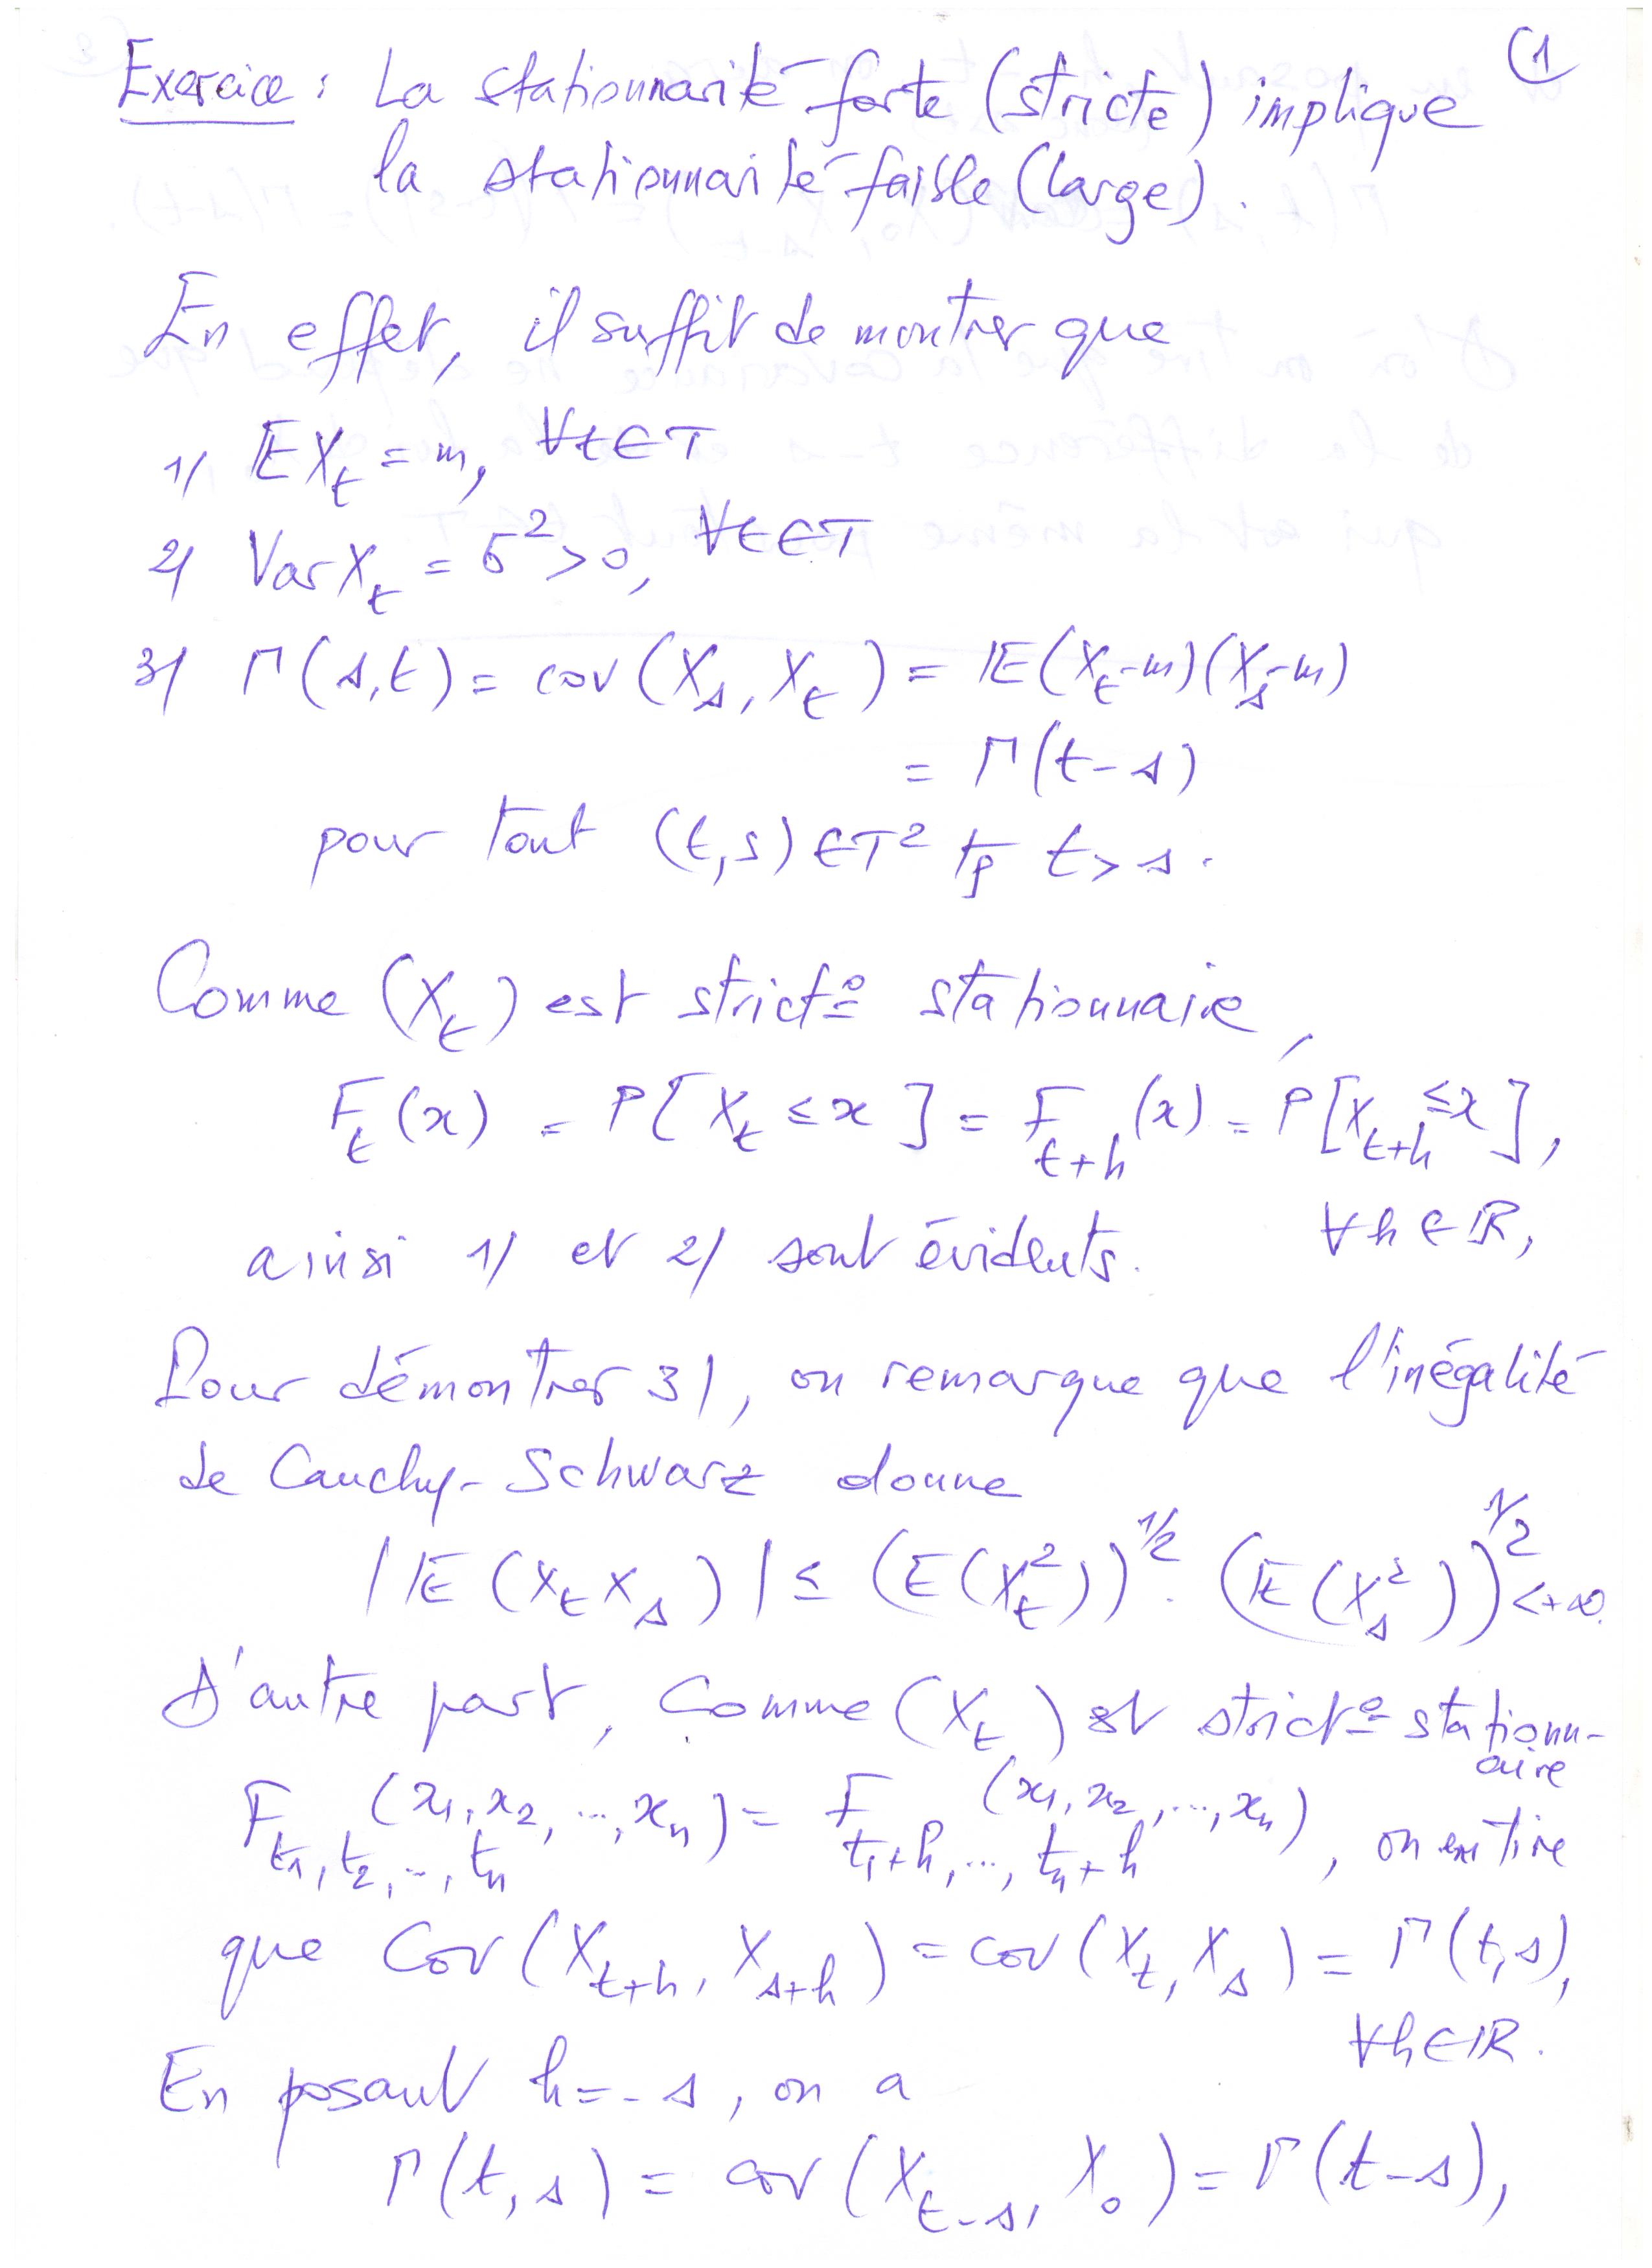 (1
Exercice : La stationnarité forte (stricte) implique
la stationnarité faible (large).
En effet, il suffit de montrer que
1/ 𝔼X_t = m, ∀t∈T
2/ Var X_t = σ² > 0, ∀t∈T
3/ Γ(s,t) = cov(X_s, X_t) = 𝔼(X_t-m)(X_s-m)
= Γ(t-s)
pour tout (t,s) ∈T² tq t > s.
Comme (X_t) est strict^e stationnaire,
F_t(x) = P[X_t ≤ x] = F_{t+h}(x) = P[X_{t+h} ≤ x],
∀h∈ℝ,
ainsi 1/ et 2/ sont évidents.
Pour démontrer 3/, on remarque que l'inégalité
de Cauchy-Schwarz donne
|𝔼(X_t X_s)| ≤ (E(X_t²))^{1/2} . (𝔼(X_s²))^{1/2} < +∞.
D'autre part, Comme (X_t) est strict^e stationn-
aire
F_{t₁,t₂,..,t_n}(x₁,x₂,...,x_n) = F_{t₁+h,...,t_n+h}(x₁,x₂,...,x_n), on en tire
que Cov(X_{t+h}, X_{s+h}) = cov(X_t, X_s) = Γ(t,s),
∀h∈ℝ.
En posant h = -s, on a
Γ(t,s) = cov(X_{t-s}, X_0) = Γ(t-s),